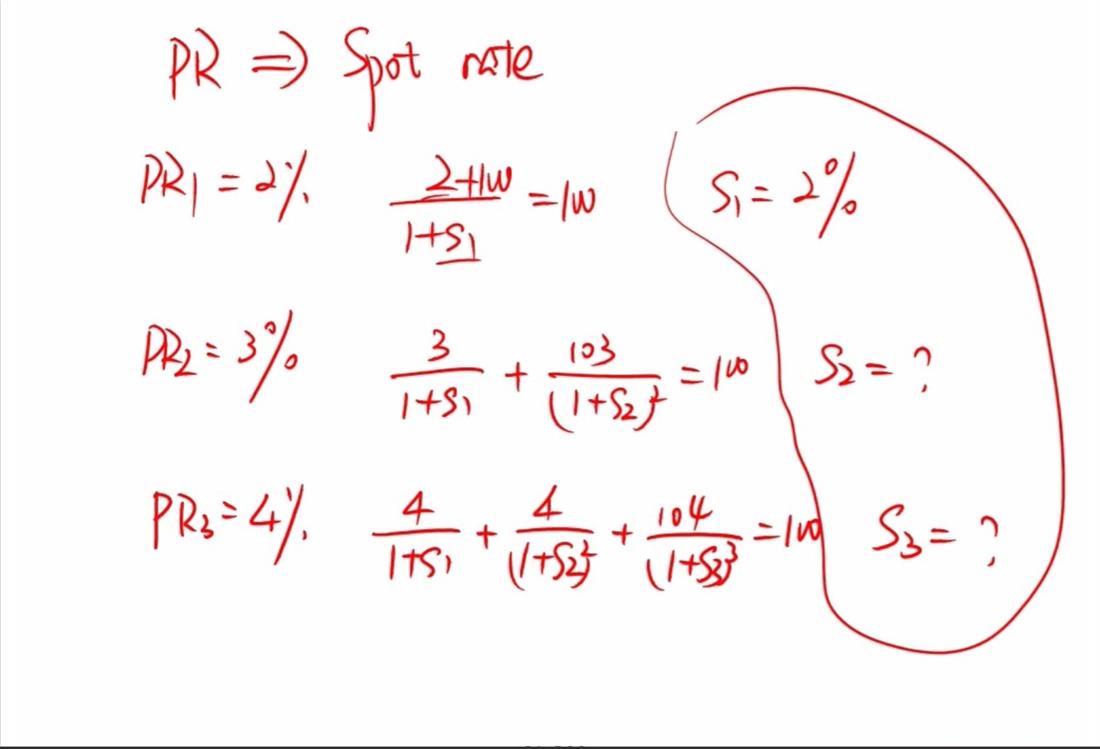 PR ⇒ Spot rate
PR1 = 2% (2+100)/(1+S1) = 100 S1 = 2%
PR2 = 3% 3/(1+S1) + 103/(1+S2)² = 100 S2 = ?
PR3 = 4% 4/(1+S1) + 4/(1+S2)² + 104/(1+S3)³ = 100 S3 = ?